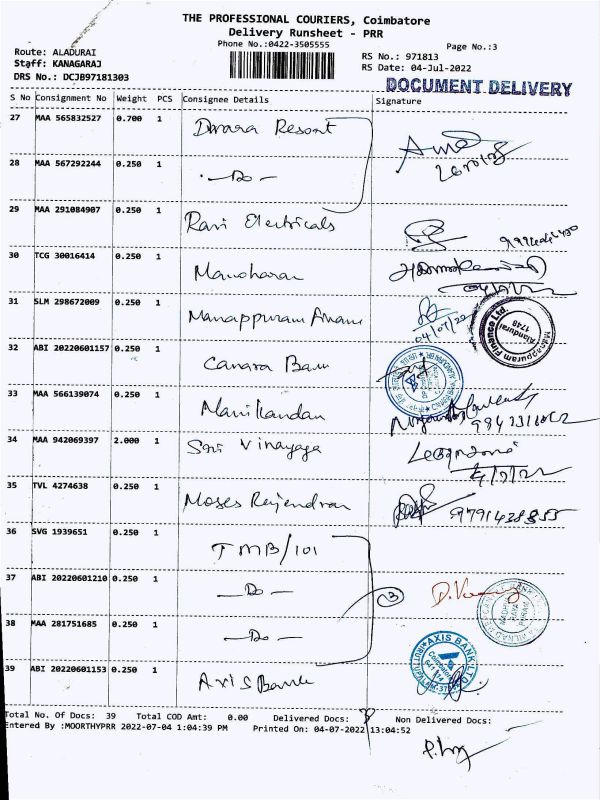 THE PROFESSIONAL COURIERS, Coimbatore
Delivery Runsheet - PRR
Phone No.:0422-3505555
Page No.:3
Route: ALADURAI
Staff: KANAGARAJ
DRS No.: DCJB97181303
RS No.: 971813
RS Date: 04-Jul-2022
DOCUMENT DELIVERY
S No Consignment No Weight PCS Consignee Details Signature
27 MAA 565832527 0.700 1 Dwara Resort
28 MAA 567292244 0.250 1 - Do -
29 MAA 291084907 0.250 1 Ravi Electricals
30 TCG 30016414 0.250 1 Manoharan
31 SLM 298672009 0.250 1 Manappuram 04/07/22 Manappuram Finance Ltd. Alandurai 1748
32 ABI 20220601157 0.250 1 Canara Bank
33 MAA 566139074 0.250 1 Manikandan
34 MAA 942069397 2.000 1 Sri Vinayaga 4/7/22
35 TVL 4274638 0.250 1 Moses Rajendran 9791438855
36 SVG 1939651 0.250 1 TMB/101
37 ABI 20220601210 0.250 1 - Do - 3
38 MAA 281751685 0.250 1 - Do -
39 ABI 20220601153 0.250 1 Axis Bank AXIS BANK LTD. Coimbatore
Total No. Of Docs: 39 Total COD Amt: 0.00 Delivered Docs: Non Delivered Docs:
Entered By :MOORTHYPRR 2022-07-04 1:04:39 PM Printed On: 04-07-2022 13:04:52